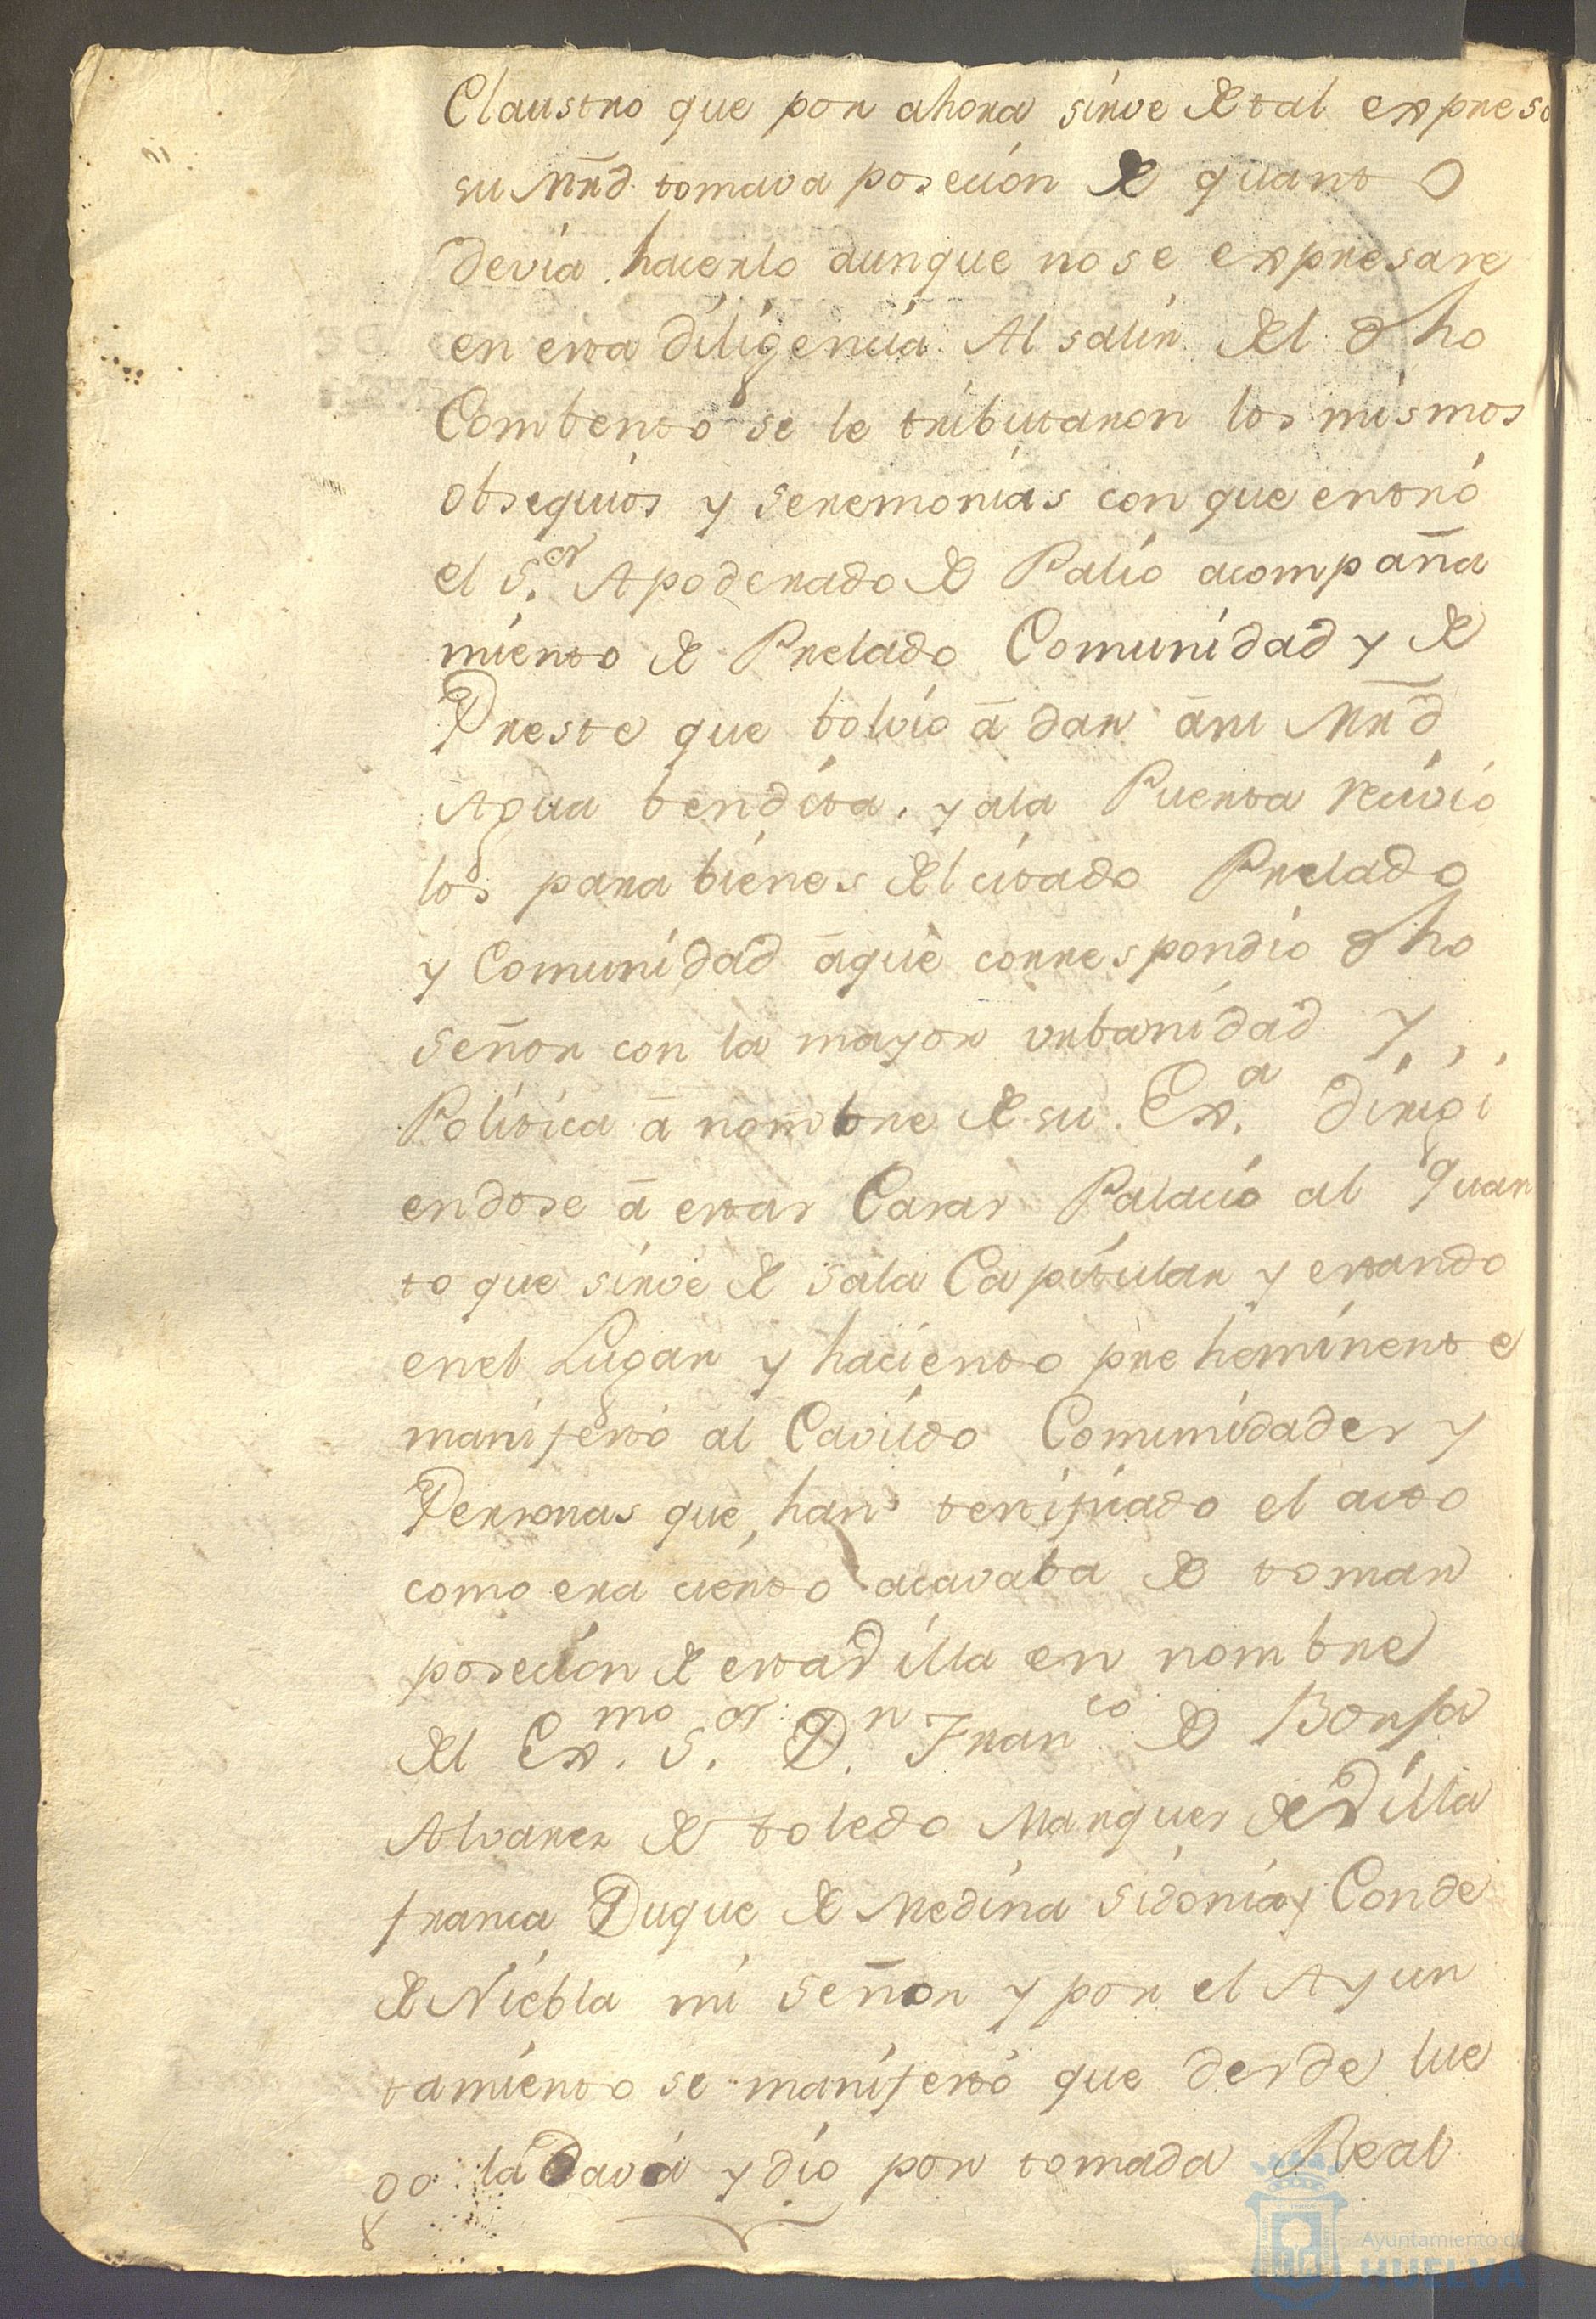 Claustro que por ahora sirve de tal expreso
su Mrd. tomava posecion de quanto
devia hacerlo aunque no se expresare
en esta diligencia. Al salir del dho
Combento se le tributaron los mismos
obsequios y seremonias con que entró
el S.or Apoderado de Palio acompaña
miento de Prelado Comunidad y de
Preste que bolvio á dar á su Mrd
Agua bendita, y a la Puerta recivio
los parabienes del citado Prelado
y Comunidad á que correspondio dho
señor con la mayor urbanidad y,,
Politica á nombre de su Ex.a dirigi
endose á estas Casas Palacio al quar
to que sirve de sala Capitular y estando
en el Lugar y haciento preheminente
manifestó al Cavildo Comunidades y
Personas que han testificado el acto
como era cierto acavaba de tomar
posecion de esta Villa en nombre
del Ex.mo S.or D.n Fran.co de Borja
Alvarez de toledo Marques de Villa
franca Duque de Medina Sidonia y Conde
de Niebla mi Señor y por el Ayun
tamiento se manifestó que desde lue
go la dava y dio por tomada Real
Ayuntamiento de
HUELVA